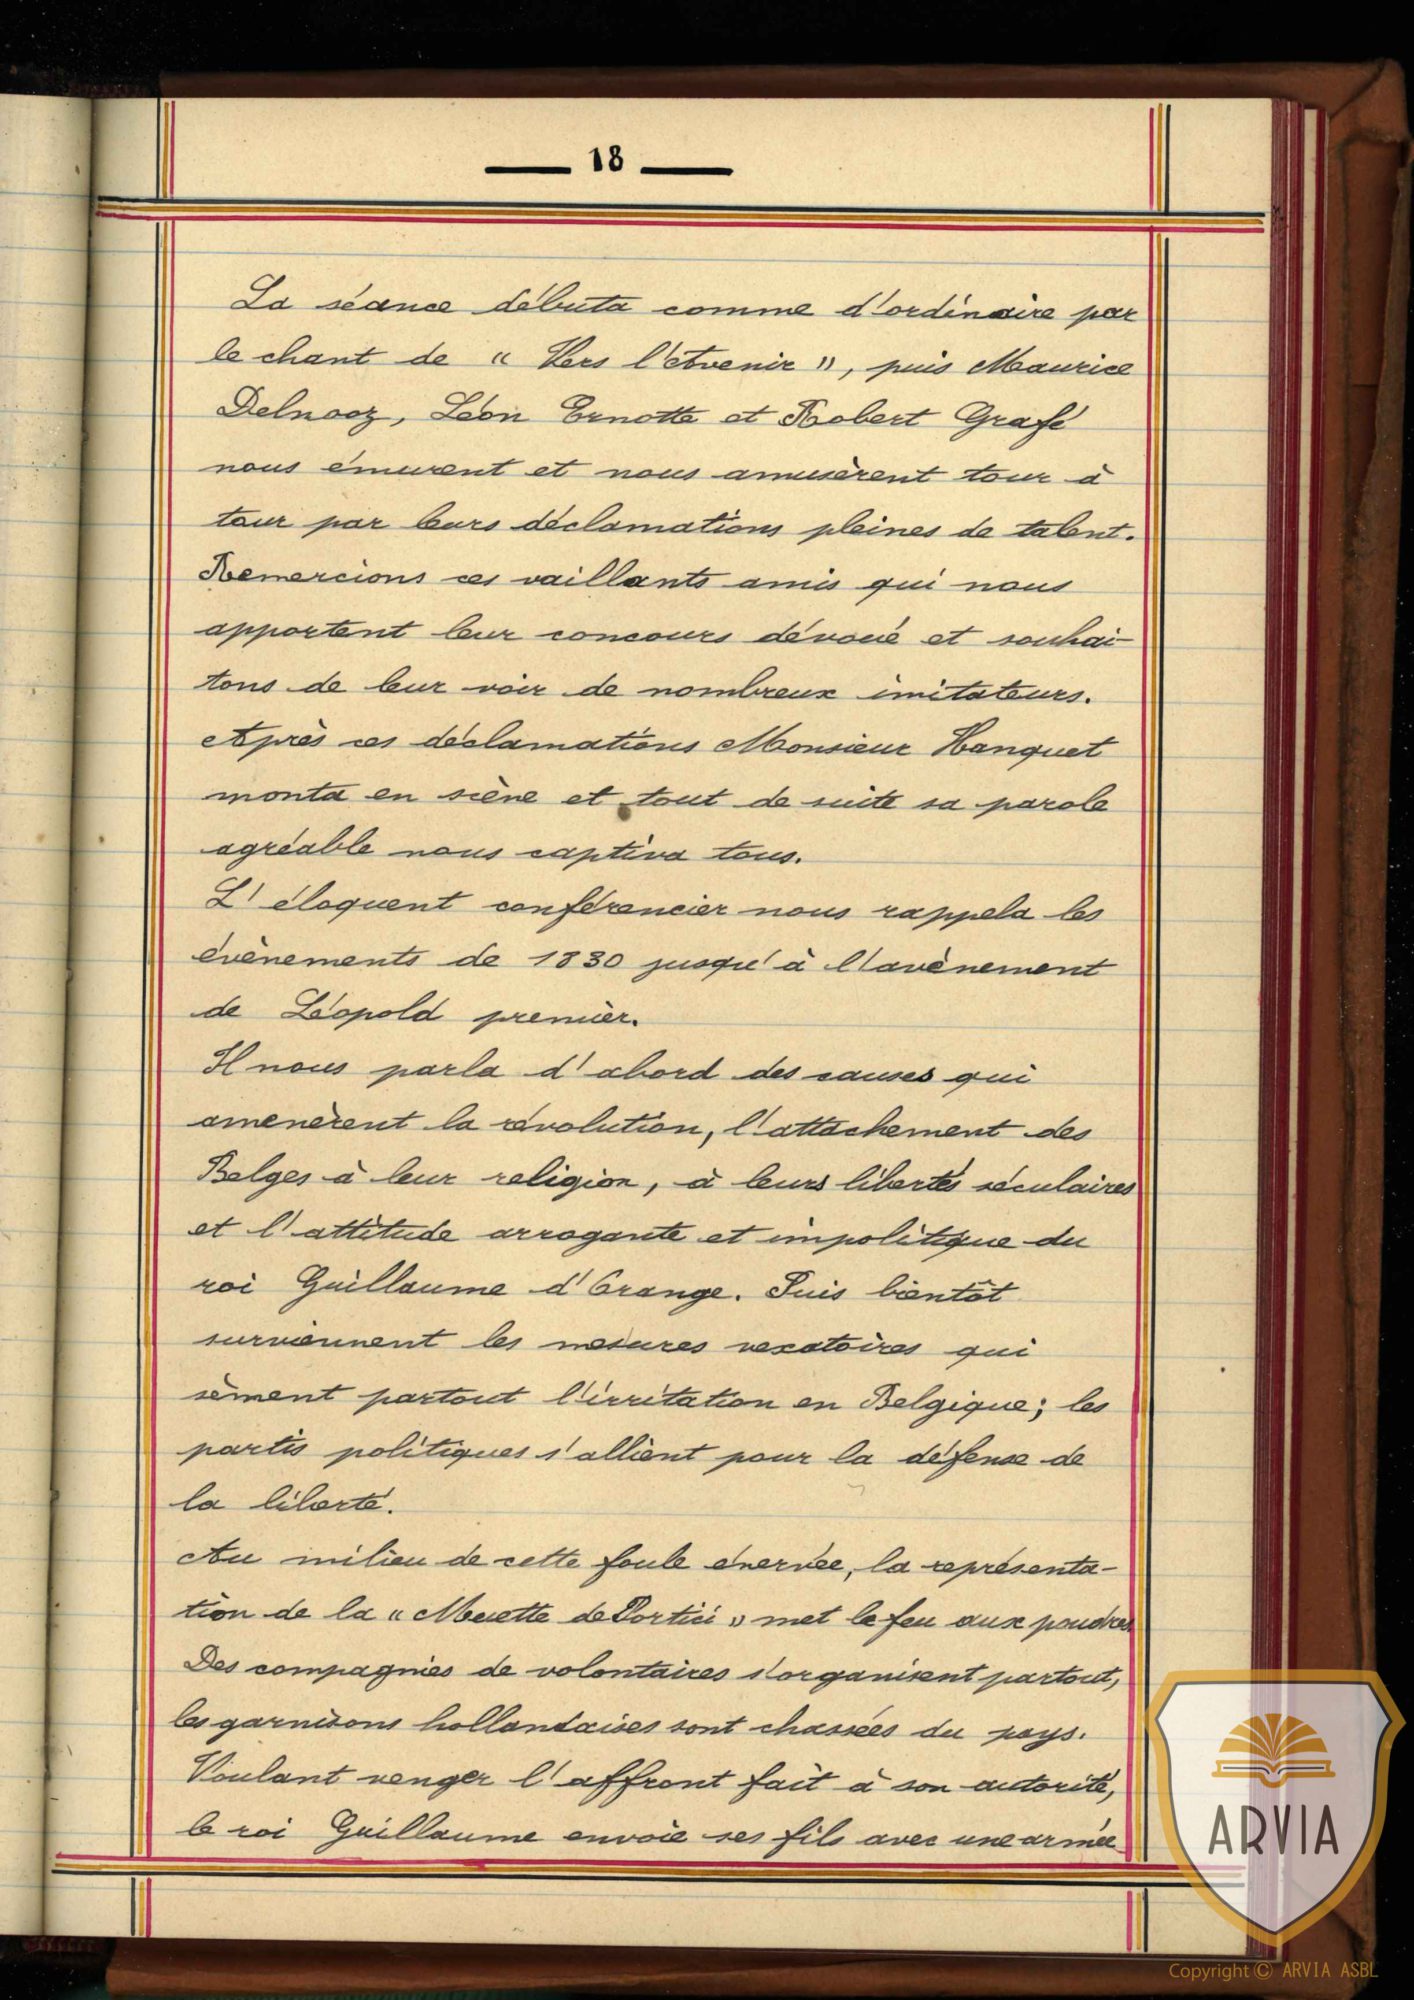 18
La séance débuta comme d'ordinaire par
le chant de " Vers l'Avenir ", puis Maurice
Delnooz, Léon Ernotte et Robert Grafé
nous émurent et nous amusèrent tour à
tour par leurs déclamations pleines de talent.
Remercions ces vaillants amis qui nous
apportent leur concours dévoué et souhai-
tons de leur voir de nombreux imitateurs.
Après ces déclamations Monsieur Hanquet
monta en scène et tout de suite sa parole
agréable nous captiva tous.
L'éloquent conférencier nous rappela les
évènements de 1830 jusqu'à l'avènement
de Léopold premier.
Il nous parla d'abord des causes qui
amenèrent la révolution, l'attachement des
Belges à leur religion, à leurs libertés séculaires
et l'attitude arrogante et impolitique du
roi Guillaume d'Orange. Puis bientôt
surviennent les mesures vexatoires qui
sèment partout l'irritation en Belgique; les
partis politiques s'allient pour la défense de
la liberté.
Au milieu de cette foule énervée, la représenta-
tion de la " Muette de Portici " met le feu aux poudres
Des compagnies de volontaires s'organisent partout,
les garnisons hollandaises sont chassées du pays.
Voulant venger l'affront fait à son autorité,
le roi Guillaume envoie ses fils avec une armée
ARVIA
Copyright © ARVIA ASBL